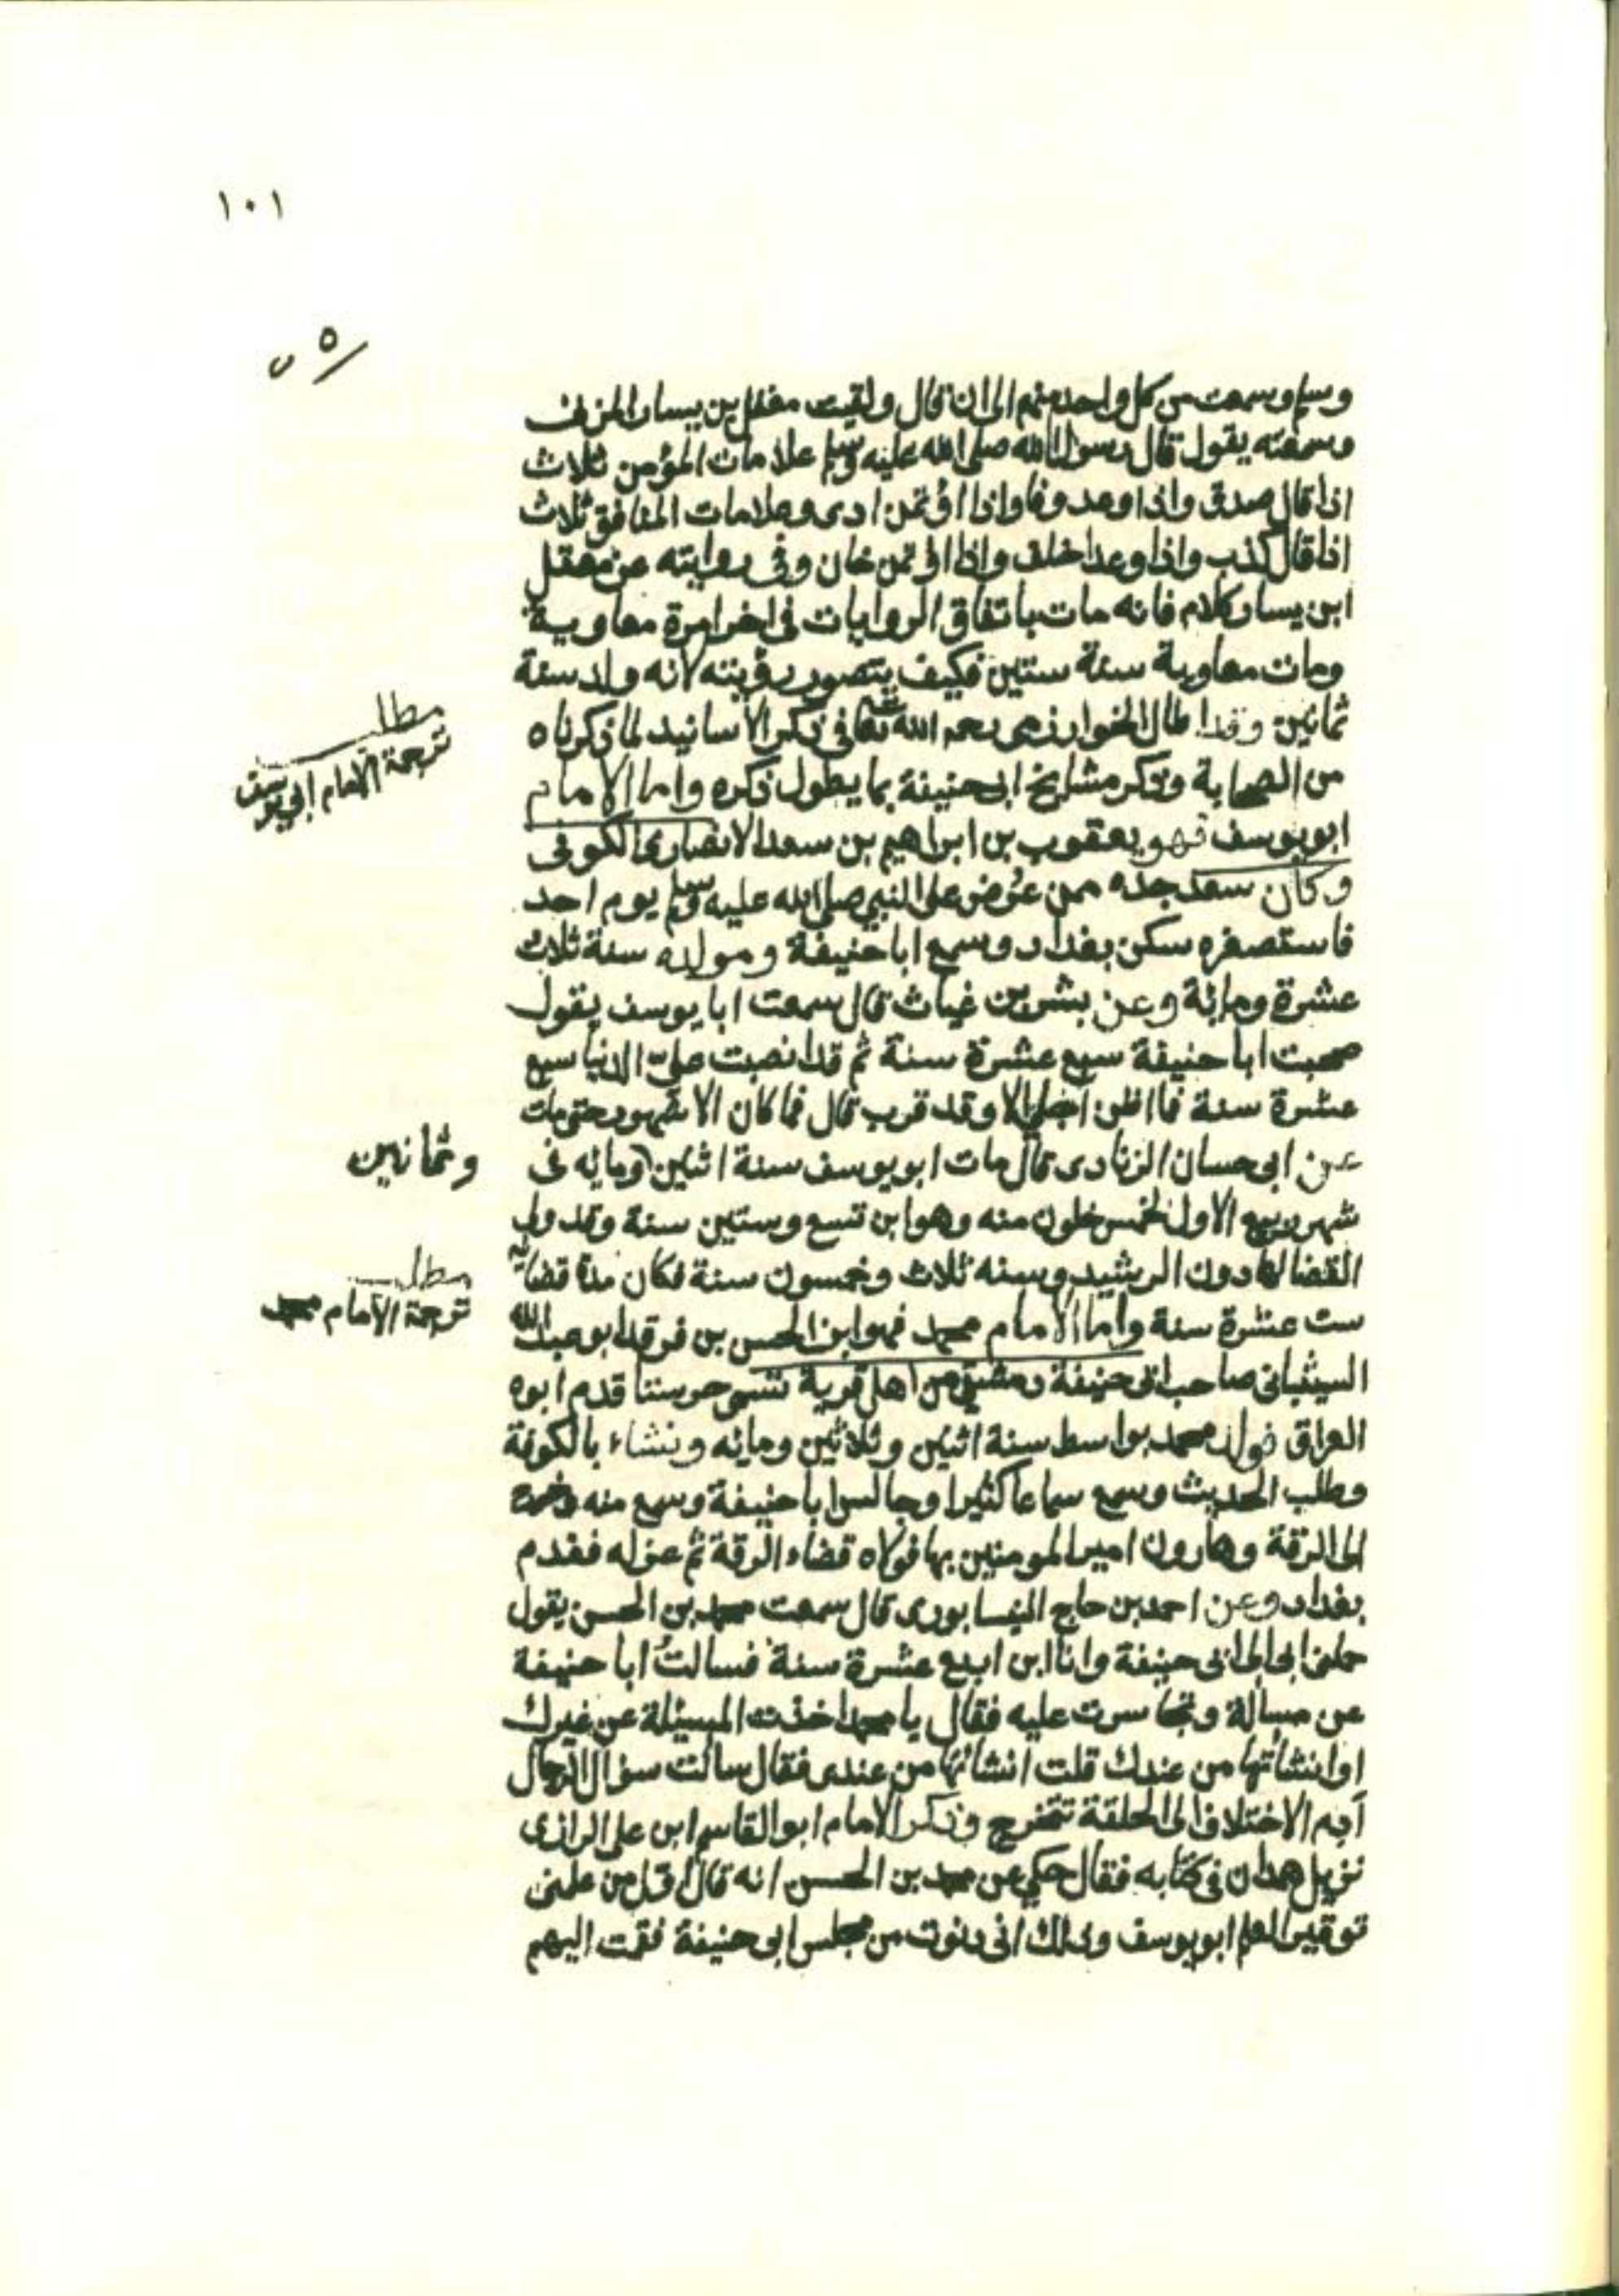 ١٠١
٥
وسلم وسمعت من كل واحد منهم الى ان قال ولقيت معقل بن يسار المزنى
وسمعته يقول قال رسول الله صلى الله عليه وسلم علامات المؤمن ثلاث
اذا قال صدق واذا وعد وفا واذا اؤتمن ادى وعلامات المنافق ثلاث
اذا قال كذب واذا وعد اخلف واذا اؤتمن خان وفى روايته عن معقل
ابن يسار كلام فانه مات باتفاق الروايات فى اخر امرة معاوية
ومات معاوية سنة ستين فكيف يتصور رؤيته لانه ولد سنة
ثمانين وقد اطال الخوارزمى رحمه الله تعالى فى ذكر الأسانيد لما ذكرناه
من الصحابة وذكر مشايخ ابى حنيفة بما يطول ذكره واما الامام
ابو يوسف فهو يعقوب بن ابراهيم بن سعد الانصارى الكوفى
وكان سعد جده ممن عرض على النبي صلى الله عليه وسلم يوم احد
فاستصغره سكن بغداد وسمع ابا حنيفة ومولده سنة ثلاث
عشرة ومائة وعن بشر بن غياث قال سمعت ابا يوسف يقول
صحبت ابا حنيفة سبع عشرة سنة ثم قد انصبت علىّ الدنيا سبع
عشرة سنة فما اظن اجلى الا وقد قرب قال فما كان الا شهور حتى مات
عن ابى حسان الزيادى قال مات ابو يوسف سنة اثنين ومايه فى
شهر ربيع الاول لخمس خلون منه وهو ابن تسع وستين سنة وقد ولى
القضا لهارون الرشيد وسنه ثلاث وخمسون سنة فكان مدة قضائه
ست عشرة سنة واما الامام محمد فهو ابن الحسن بن فرقد ابو عبد الله
الشيبانى صاحب ابى حنيفة دمشقى من اهل قرية تسمى حرستا قدم ابوه
العراق فولد محمد بواسط سنة اثنين وثلاثين ومايه ونشاء بالكوفة
وطلب الحديث وسمع سماعا كثيرا وجالس ابا حنيفة وسمع منه وخرج
الى الرقة وهارون امير المومنين بها فولاه قضاء الرقة ثم عزله فقدم
بغداد وعن احمد بن حاج النيسابورى قال سمعت محمد بن الحسن يقول
حملنى ابى الى ابى حنيفة وانا ابن اربع عشرة سنة فسالتُ ابا حنيفة
عن مسألة وتجاسرت عليه فقال يا محمد اخذت المسيئلة عن غيرك
او انشأتها من عندك قلت انشاتها من عندى فقال سالت سؤال الرجال
أدم الاختلاف الى الحلقة تتخرج وذكر الامام ابو القاسم ابن على الرازى
نزيل همدان فى كتابه فقال حكي عن محمد بن الحسن انه قال اول من علمنى
توقير العلم ابو يوسف وذلك انى دنوت من مجلس ابى حنيفة فقمت اليهم
مطلب
ترجمة الامام ابي يوسف
وثمانين
مطلب
ترجمة الامام محمد